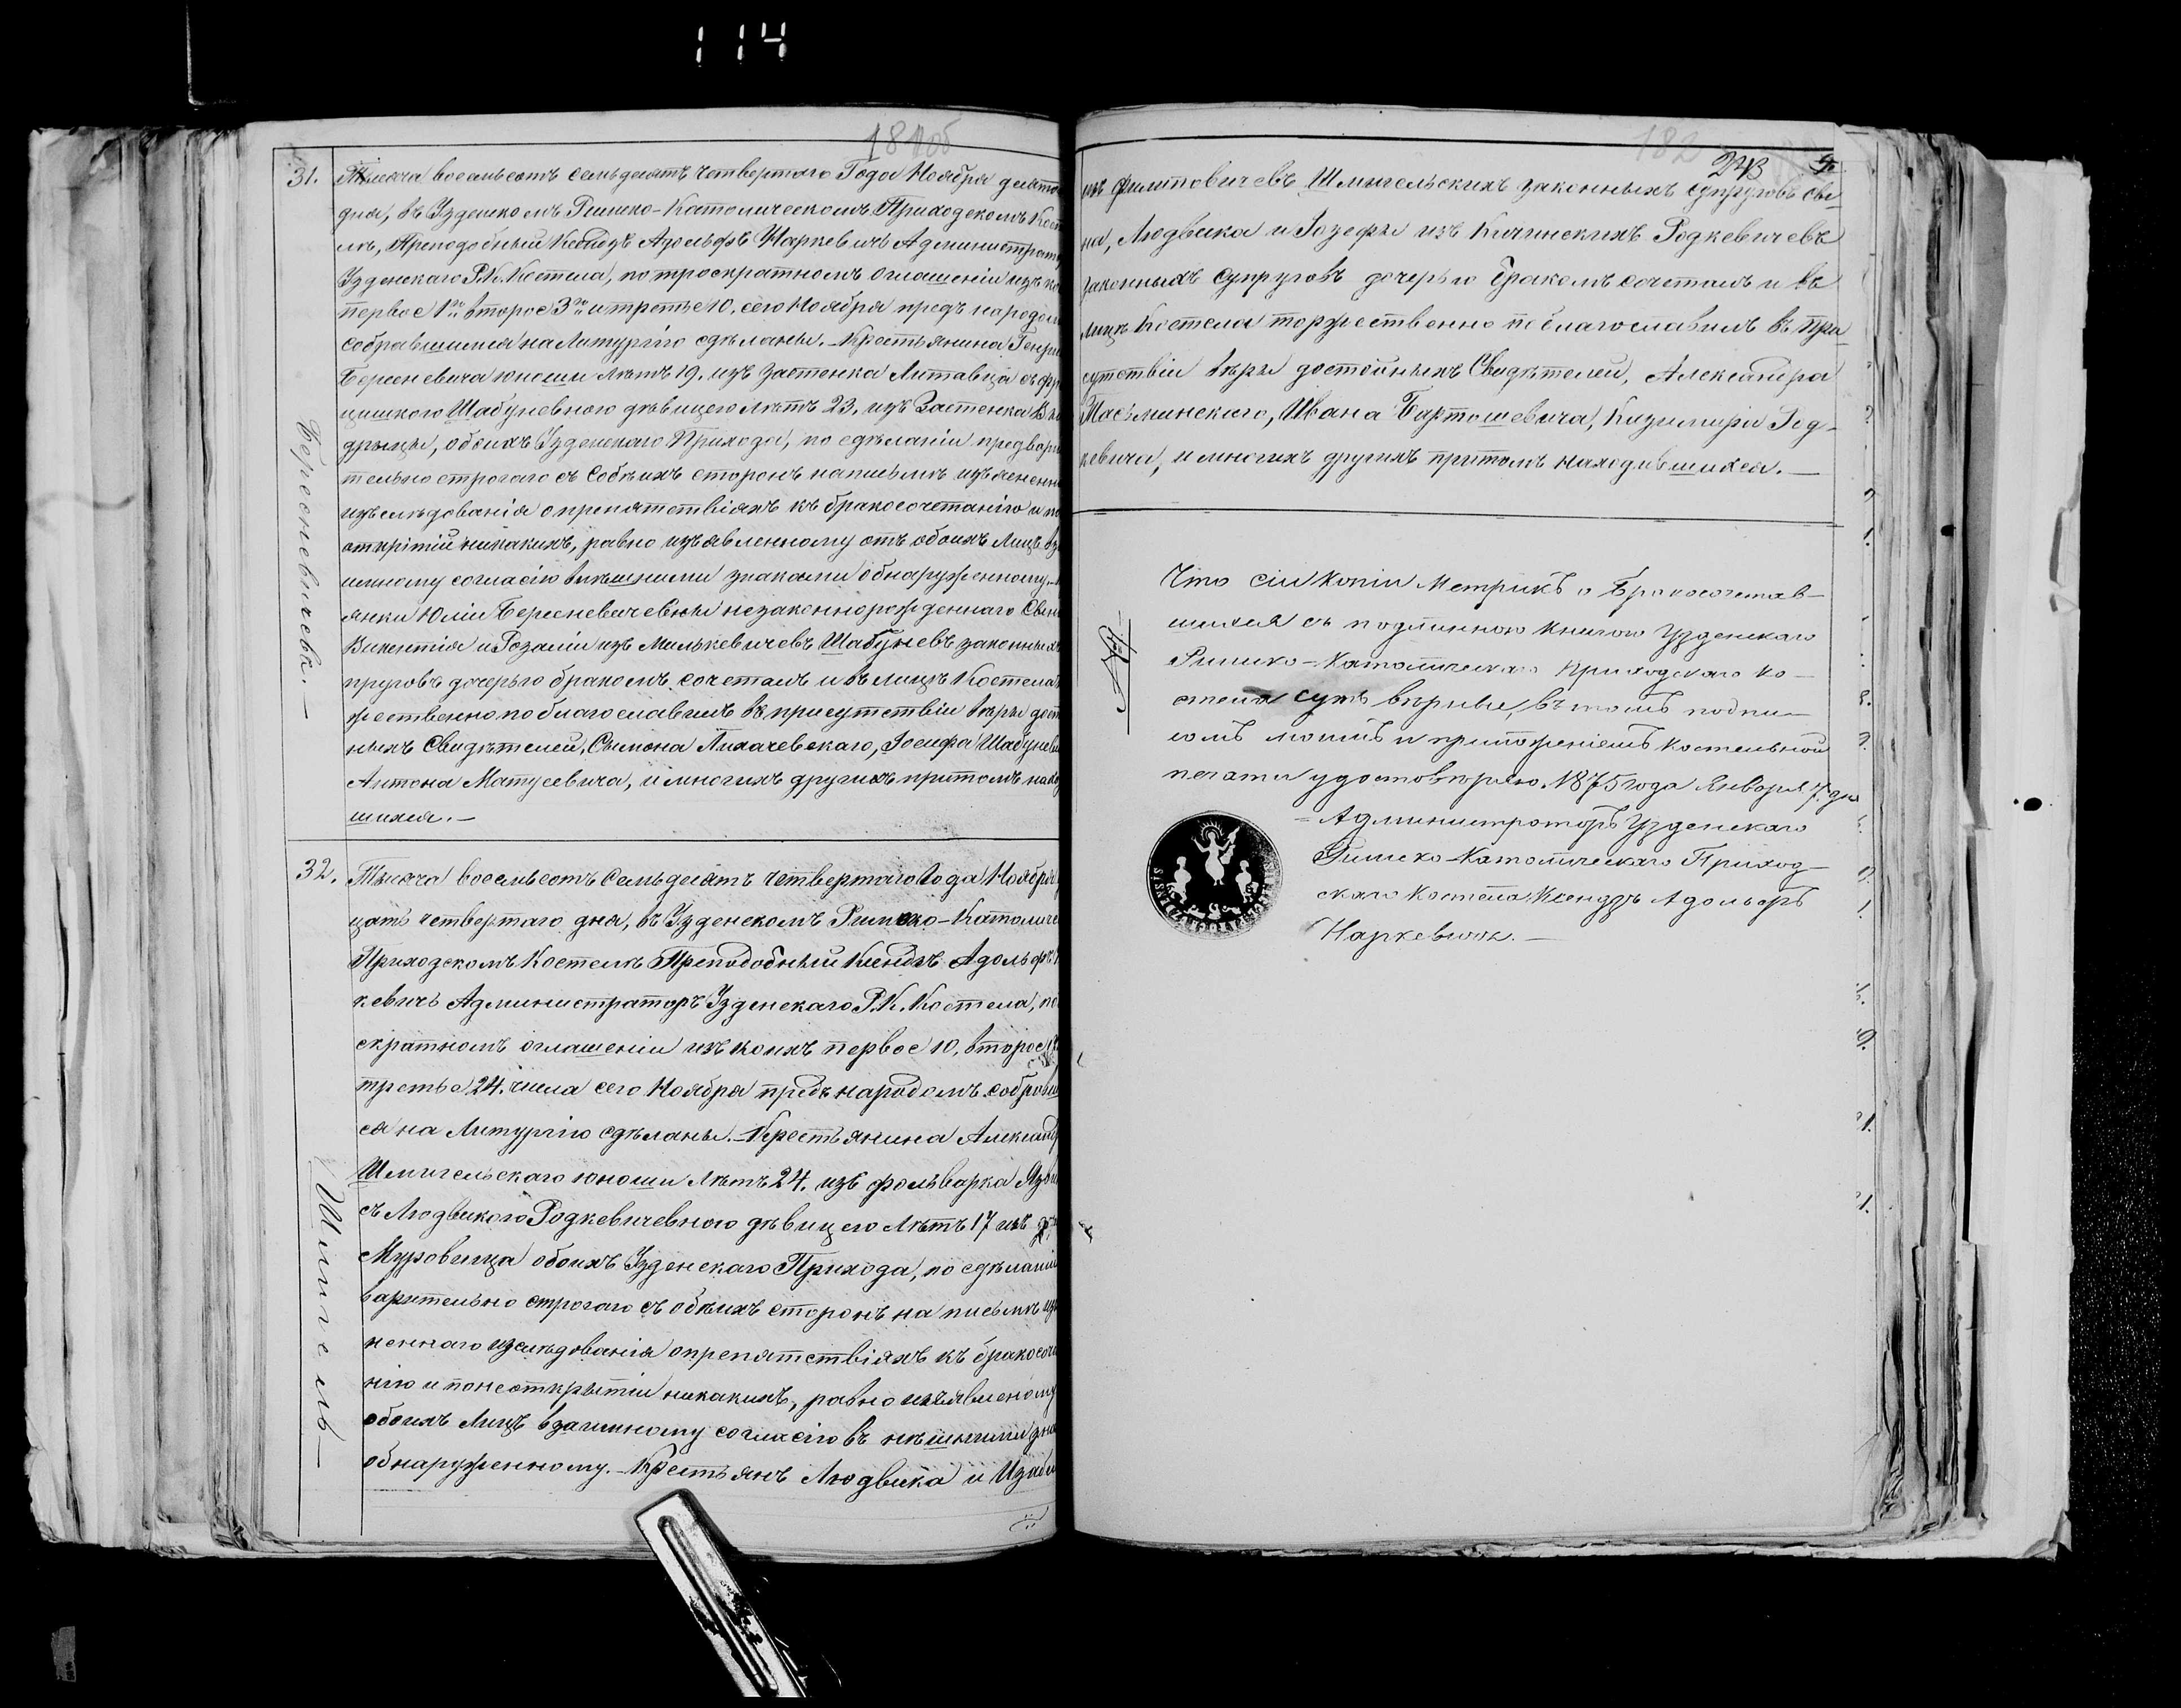 114
181об
31.
Тысяча восемьсотъ семьдесятъ четвертаго Года Ноября десято
дня, въ Узденскомъ Римско-Католическомъ Приходскомъ Кост
лѣ, Преподобный Ксендзъ Адольфъ Наркевичъ Администрат
Узденскаго Р.К. Костела, по троекратномъ оглашеніи изъ ко
первое 1го второе 3го и третье 10. сего Ноября предъ народом
собравшимся на Литургію сдѣланы. Крестьянина Генри
Береcневича юноши лѣтъ 19. изъ Застенка Литавца съ Фран
цишкою Шабуневною дѣвицею лѣтъ 23, изъ Застенка
обоихъ Узденскаго Прихода, по сдѣланіи предвари
тельно строгаго съ собѣихъ сторонъ написьмѣ изъясненна
изъслѣдованія о препятствіяхъ къ бракосочетанію и по
открытіи никакихъ, равно изъявленному отъ обоихъ Лицъ вза
имному согласію внѣшними знаками обнаруженному,
янки Юліи Береcневичевны незаконнорожденнаго Сына
Викентія и Розаліи изъ Милькевичевъ Шабуневъ законныхъ
пруговъ дочерью бракомъ сочеталъ и въ лицѣ Костела
жественно поблагославилъ въ присутствіи вѣры дост
ныхъ Свидѣтелей, Сымона Лихачевскаго, Іосифа Шабуневи
Антона Матусевича, и многихъ другихъ притомъ нахо
шихся.—
Береcневичевъ.—
32.
Тысяча восемьсотъ Семьдесятъ четвертаго Года Ноября
цать четвертаго дня, въ Узденскомъ Римско-Католиче
Приходскомъ Костелѣ Преподобный Ксендзъ Адольфъ
кевичъ Администраторъ Узденскаго Р.К. Костела, по
скратномъ оглашеніи изъ коихъ первое 10, второе
третье 24. числа сего Ноября предъ народомъ собравш
ся на Литургію сдѣланы. Крестьянина Александ
Шмигельскаго юноши лѣтъ 24. изъ фольварка
съ Людвикою Родкевичевною дѣвицею лѣтъ 17 изъ
Муровища обоихъ Узденскаго Прихода, по сдѣланіи
варительно строгаго съ обѣихъ сторонъ на письмѣ изъ
неннаго изслѣдованія о препятствіяхъ къ бракосоче
нію и понеоткрытіи никакихъ, равно изъявленому
обоихъ Лицъ взаимному согласію внѣшними зна
обнаруженному. Крестьянъ Людвика и Изабе
Шмигель—
182
243
изъ Филиповичевъ Шмыгельскихъ законныхъ супруговъ Сы-
на, Людвика и Іозефы изъ Кичинскихъ Родкевичевъ
законныхъ супруговъ дочерью бракомъ сочеталъ и въ
лицѣ Костела торжественно поблагославилъ въ при-
сутствіи вѣры достойныхъ Свидѣтелей, Александра
Ивана Бартошевича, Казимира Род-
кевича, и многихъ другихъ притомъ находившихся.—
Что сіи копіи Метрикъ о Бракосочетав-
шихся съ подлинною книгою Узденскаго
Римско-Католическаго Приходскаго Ко-
стела суть вѣрны, въ томъ подпи-
сомъ моимъ и приложеніемъ костельной
печати удостовѣряю. 1875 года Января 7. дня
Администраторъ Узденскаго
Римско-Католическаго Приход-
скаго Костела Ксендзъ Адольфъ
Наркевичъ.—